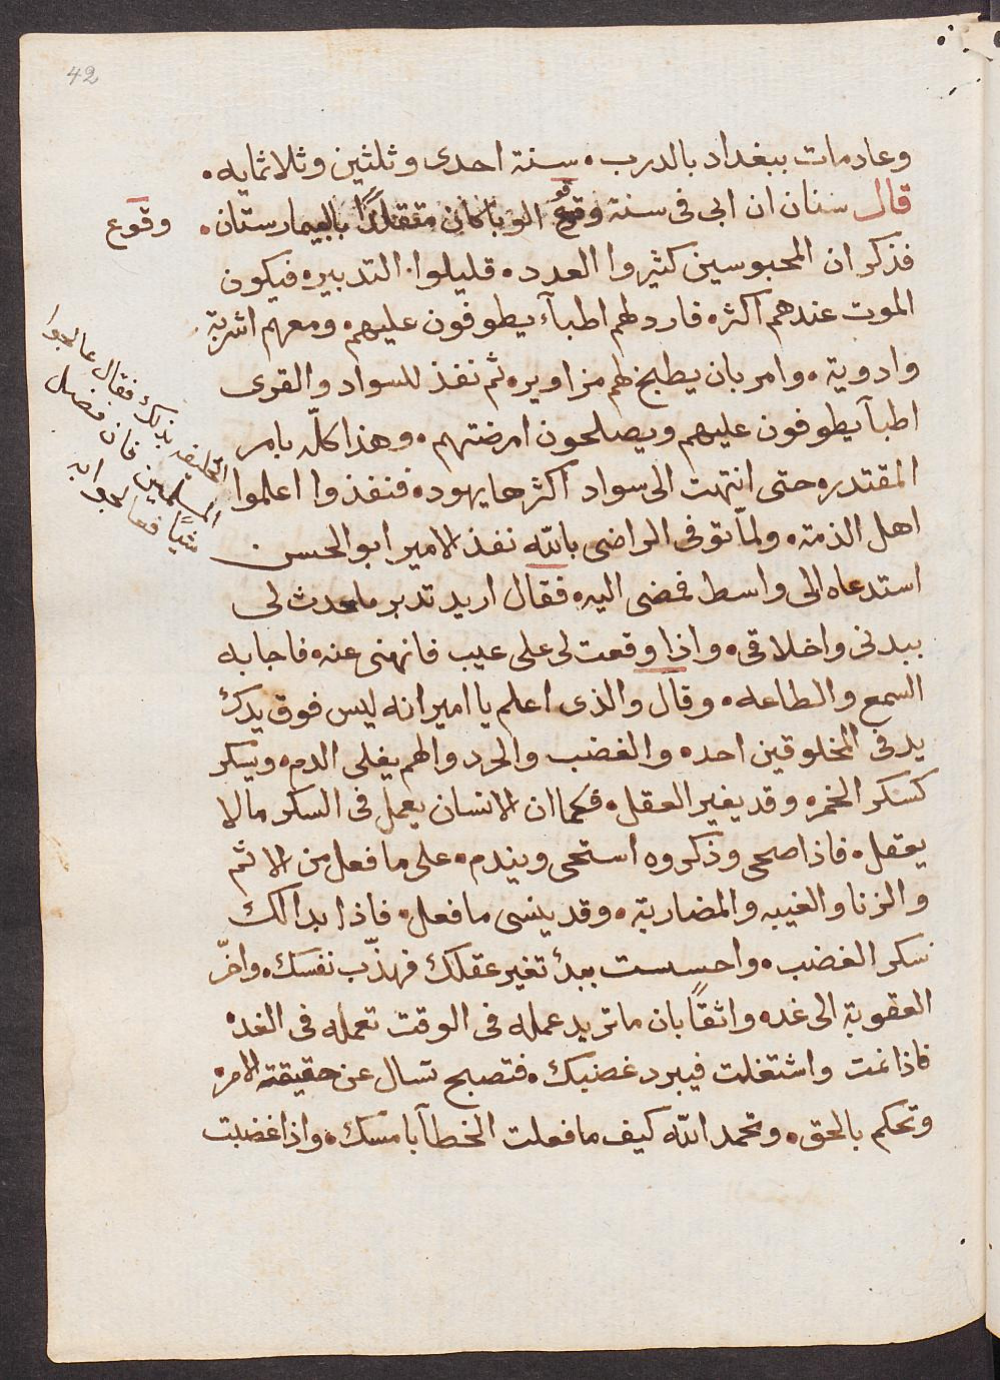 42
وعاد مات ببغداد بالدرب. سنة احدى وثلثين وثلاثمايه.
قال سنان ان ابى فى سنة وقوع الوبا كان متقلدًا بالبيمارستان.
وقوع
فذكر ان المحبوسين كثيروا العدد. قليلوا التدبير. فيكون
الموت عندهم اكثر. فارد لهم اطبآء يطوفون عليهم. ومعهم اشربة
وادوية. وامر بان يطبخ لهم مزاوير. ثم نفذ للسواد والقرى
اطبآ يطوفون عليهم ويصلحون امرضتهم. وهذا كلّه بامر
المقتدر. حتى انتهت الى سواد اكثرها يهود. فنفذوا اعلموا
الخليفه بذلك فقال عالجوا
المسلمين فان فضل
شيًا فعالجوا به
اهل الذمة. ولمّا توفى الراضى بالله نفذ الامير ابو الحسن
استدعاه الى واسط فمضى اليه. فقال اريد تدبر ما يحدث لى
ببدنى واخلاقى. واذا وقعت لى على عيب فانهنى عنه. فاجابه
السمع والطاعه. وقال والذى اعلم يا امير انه ليس فوق يدك
يد فى المخلوقين احد. والغضب والحرد والهم يغلى الدم. ويسكر
كسكر الخمر. وقد يغير العقل. فكما ان الانسان يعمل فى السكر ما لا
يعقل. فاذا صحى وذكروه استحى ويندم. على ما فعل من الاثم
والزنا والغيبه والمضاربة. وقد ينسى ما فعل. فاذا بدا لك
سكر الغضب. واحسست ببدئ تغير عقلك فهذّب نفسك. واخّر
العقوبة الى غد. واثقًا بان ما تريد عمله فى الوقت تعمله فى الغد.
فاذا نمت واشتغلت فيبرد غضبك. فتصبح تسال عن حقيقة الامر.
وتحكم بالحق. وتحمد الله كيف ما فعلت الخطآ بامسك. واذا غضبت